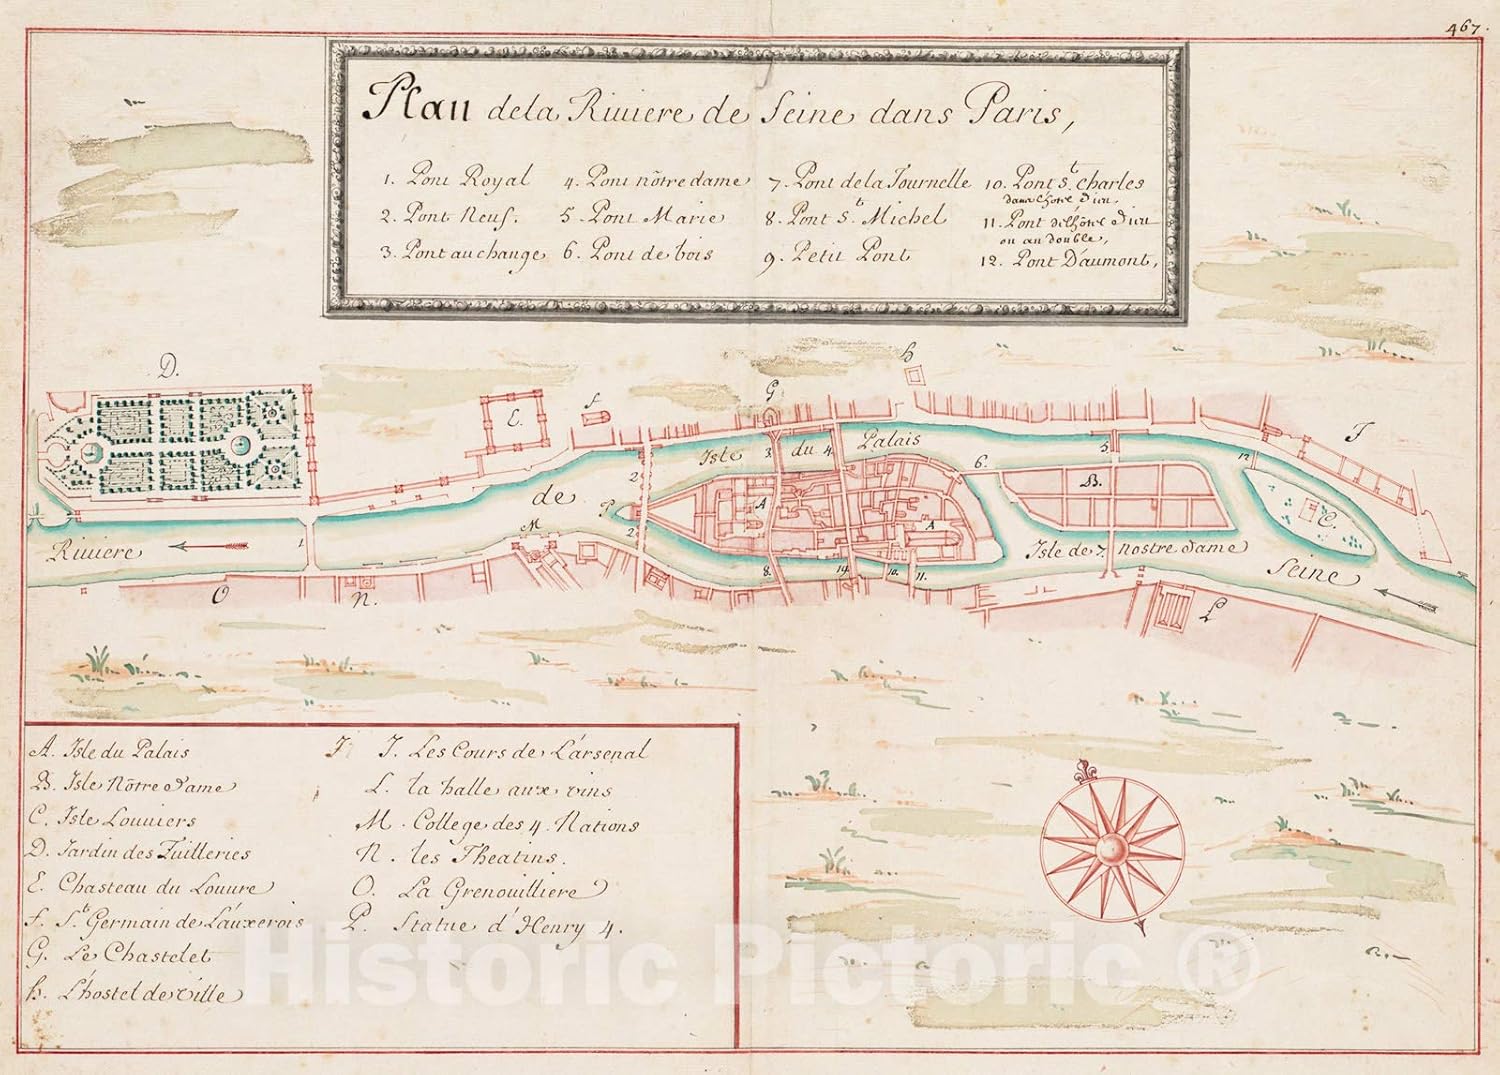 467.
Plan dela Riuiere de Seine dans Paris,
1. Pont Royal
2. Pont Neuf.
3. Pont au change
4. Pont nõtre dame
5. Pont Marie
6. Pont de bois
7. Pont dela Tournelle
8. Pont St. Michel
9. Petit Pont
10. Pont St. Charles
dans l'hôtel d'ieu
11. Pont del'hôtel d'ieu
ou au double,
12. Pont D'aumont,
D.
E.
F
G
h
J
3
4
Isle du Palais
5
12
2
de
P
6.
B.
A
A
C.
M
2
Riuiere
1
8.
10.
11.
Isle de 7. nostre dame
Seine
O
N.
L
A. Isle du Palais
B. Isle Nõtre dame
C. Isle Louuiers
D. Jardin des Tuilleries
E. Chasteau du Louure
F. St. Germain de L'auxerois
G. Le Chastelet
h. L'hostel de ville
J J. Les Cours de L'arsenal
L. la halle aux vins
M. College des 4. Nations
N. les Theatins.
O. La Grenouilliere
P. Statue d'Henry 4.
Historic Pictoric ®